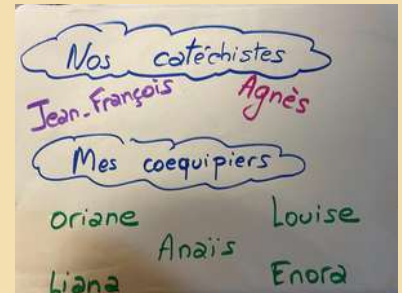 Nos catéchistes
Jean-François Agnès
Mes coequipiers
Oriane Louise
Anaïs
Liana Enora